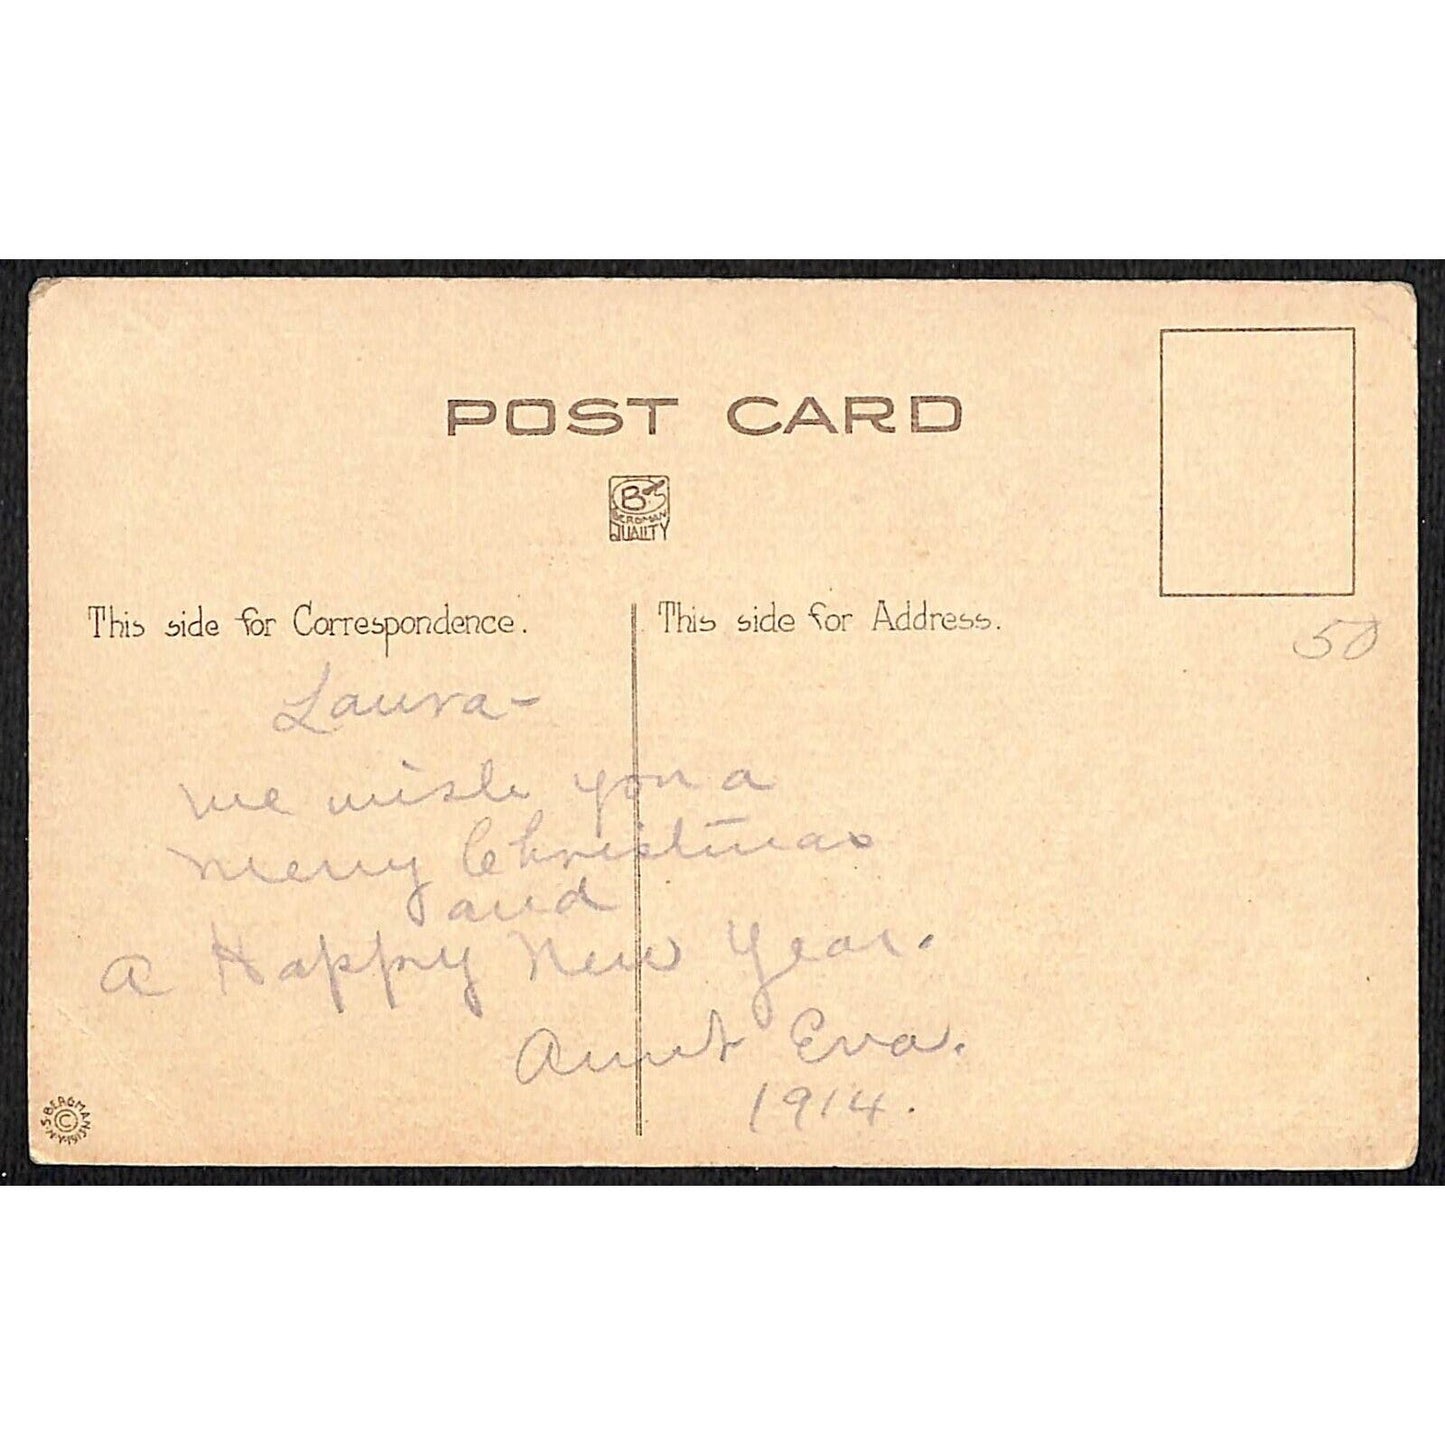 POST CARD
BS
BERGMAN
QUALITY
This side for Correspondence.
This side for Address.
50
Laura-
We wish you a
Merry Christmas
and
A Happy New Year.
Aunt Eva.
1914.
S. BERGMAN © 1913 N.Y.